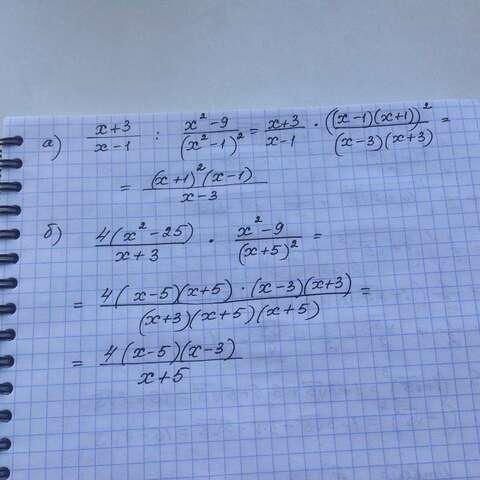 а) (x+3)/(x-1) : (x²-9)/(x²-1)² = (x+3)/(x-1) · ((x-1)(x+1))²/((x-3)(x+3)) =
= ((x+1)²(x-1))/(x-3)
б) (4(x²-25))/(x+3) · (x²-9)/(x+5)² =
= (4(x-5)(x+5)·(x-3)(x+3))/((x+3)(x+5)(x+5)) =
= (4(x-5)(x-3))/(x+5)